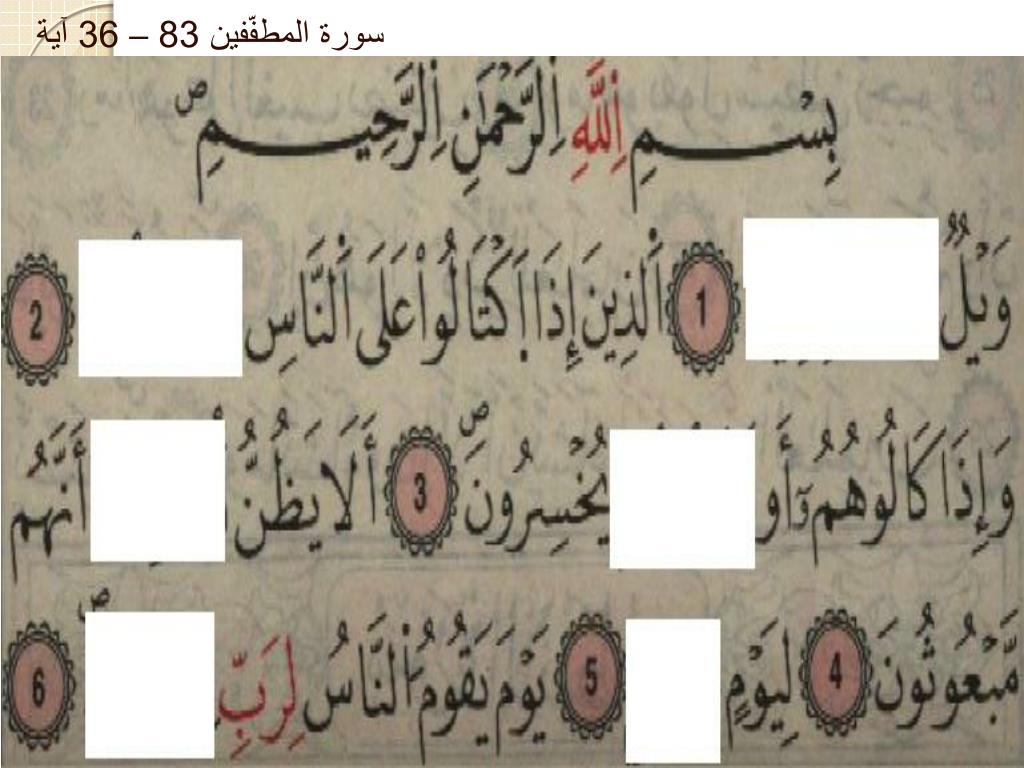 سورة المطفّفين 83 – 36 آية
بِسْمِ اِ۬للَّهِ اِ۬لرَّحْمَٰنِ اِ۬لرَّحِيمِ
وَيْلٌ 1 اَ۬لذِينَ إِذَا اَ۪كْتَالُواْ عَلَى اَ۬لنَّاسِ 2
وَإِذَا كَالُوهُمُۥٓ أَو يُخْسِرُونَ 3 أَلَا يَظُنُّ أَنَّهُم
مَّبْعُوثُونَ 4 لِيَوْمٍ 5 يَوْمَ يَقُومُ اُ۬لنَّاسُ لِرَبِّ 6